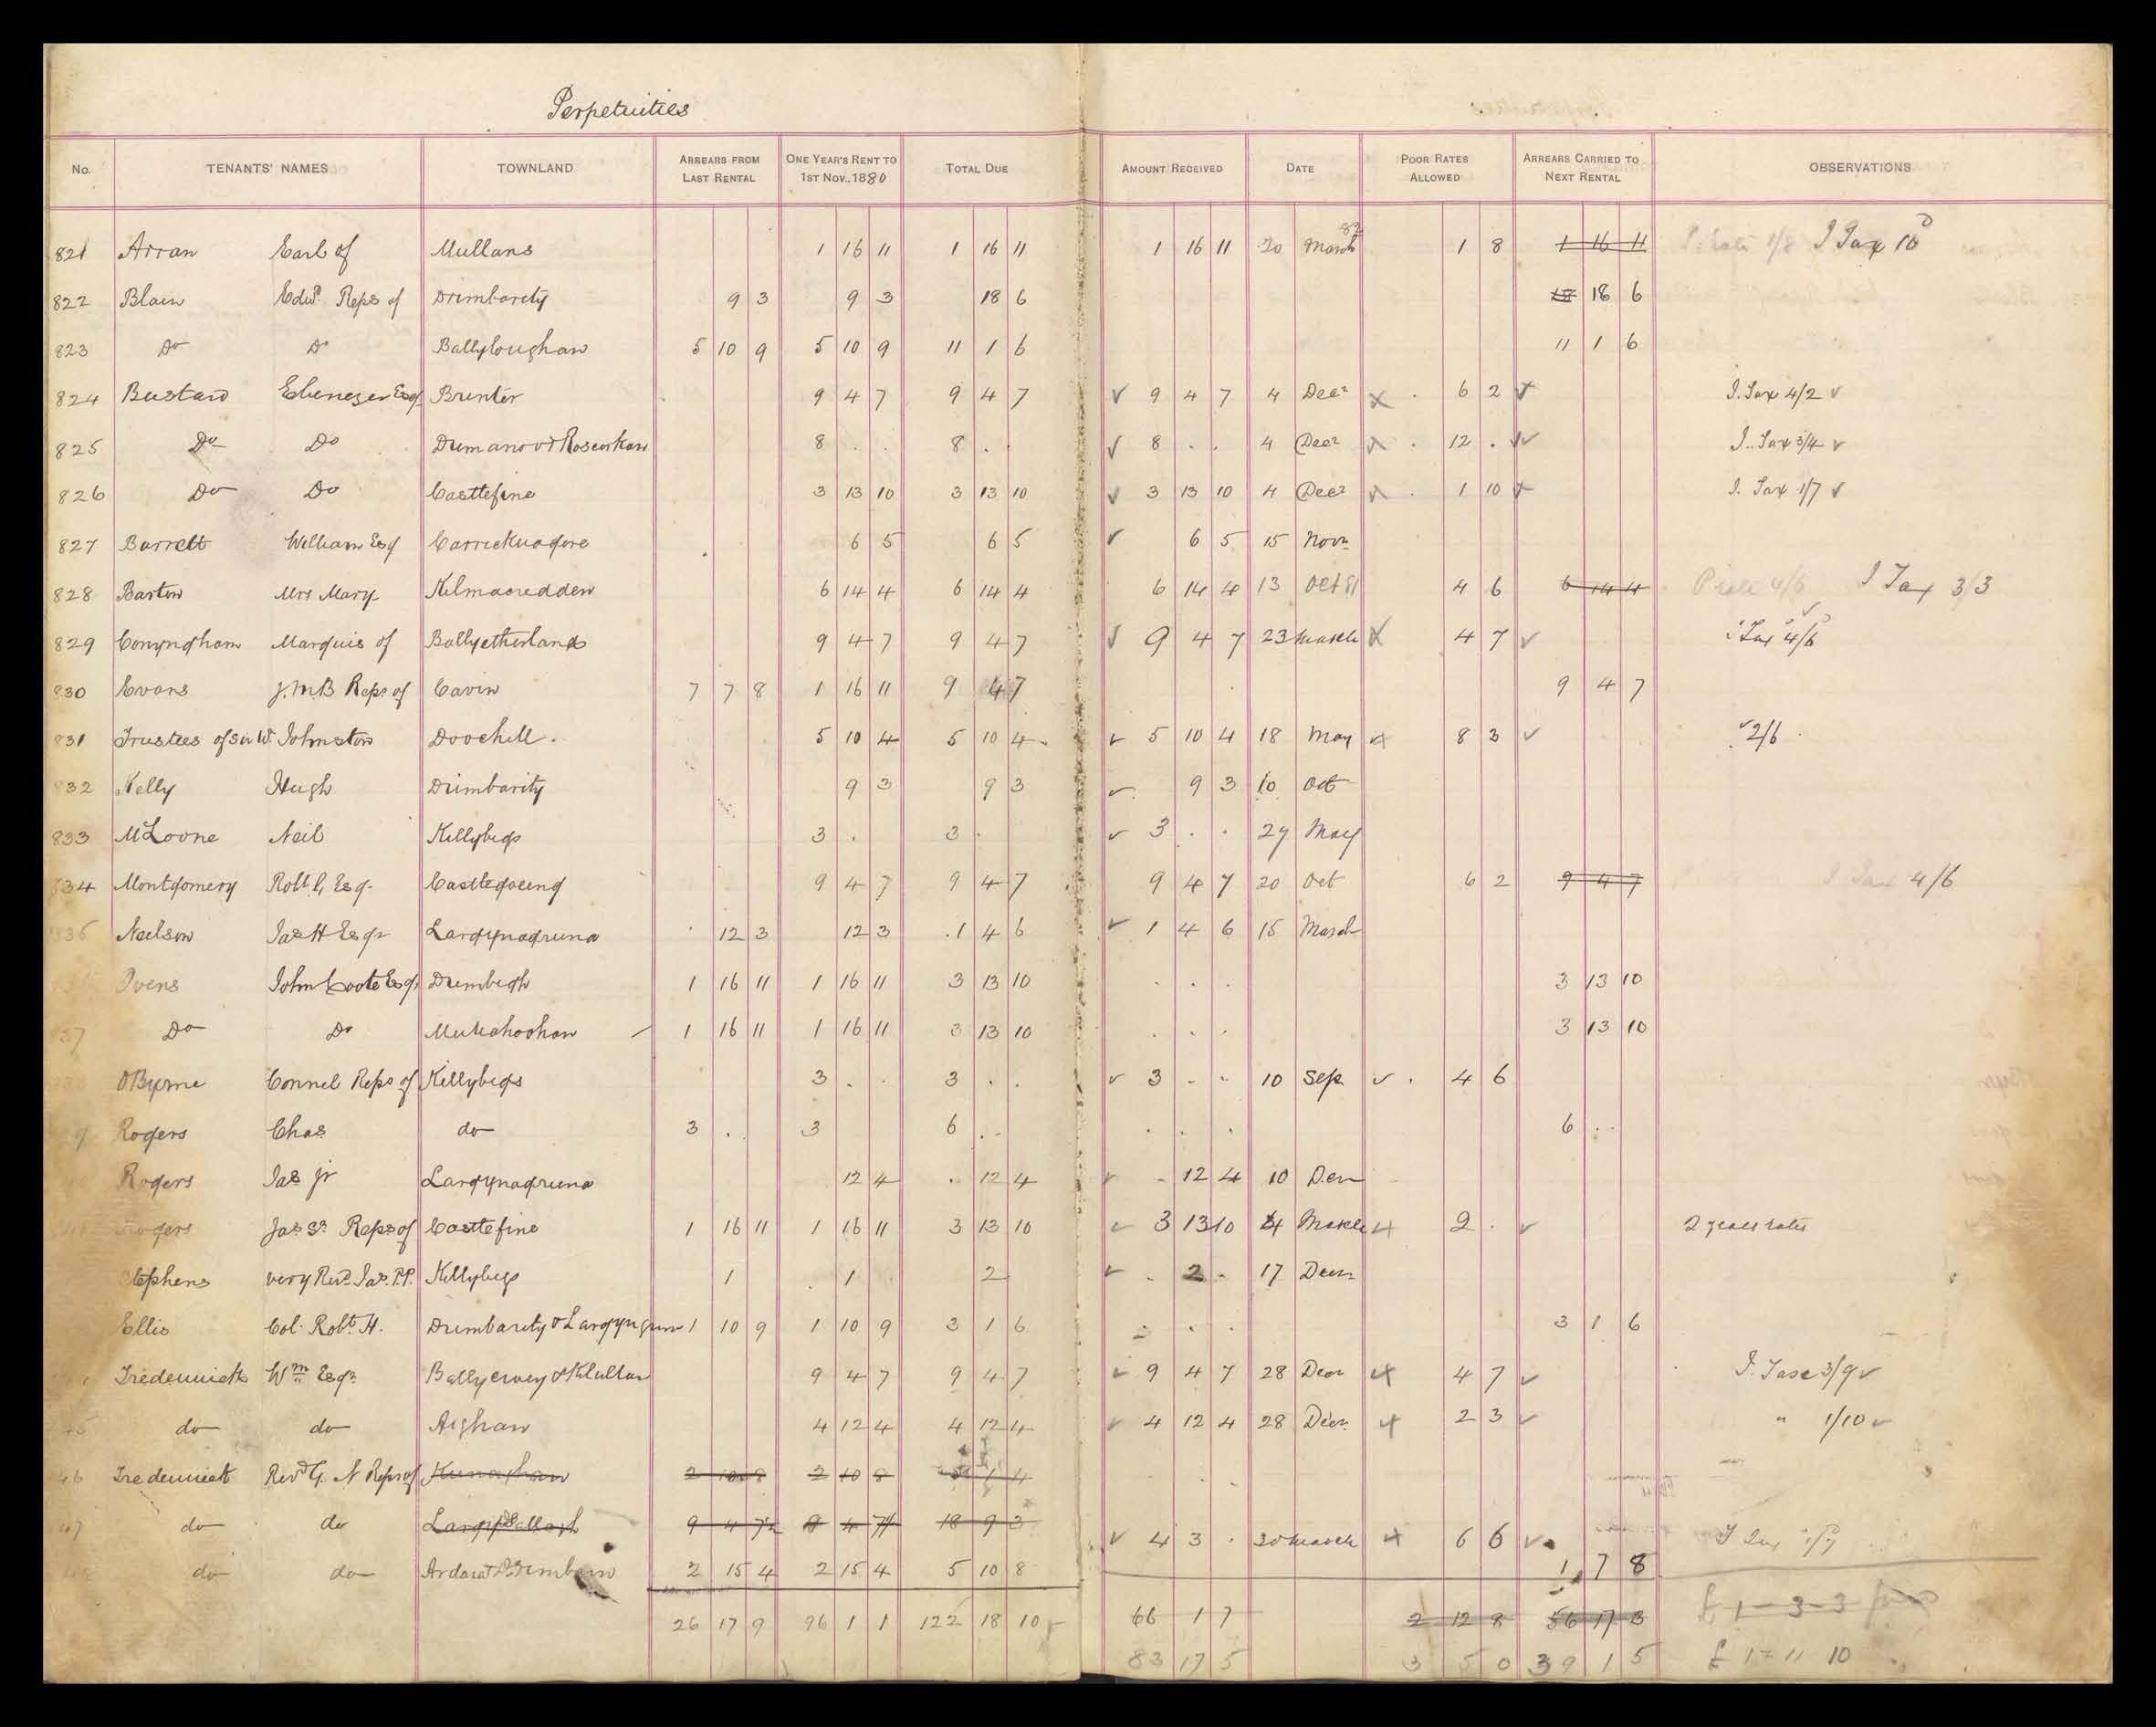 Perpetuities
No. TENANTS' NAMES TOWNLAND ARREARS FROM LAST RENTAL ONE YEAR'S RENT TO 1ST NOV., 1880 TOTAL DUE AMOUNT RECEIVED DATE POOR RATES ALLOWED ARREARS CARRIED TO NEXT RENTAL OBSERVATIONS
821 Arran Earl of Mullans 1 16 11 1 16 11 1 16 11 20 March 82 1 8 1 16 11 P. Rate 1/8 I Tax 10d
822 Blain Edwd Reps of Drimbarity 9 3 9 3 18 6 18 6
823 Do Do Ballyloughan 5 10 9 5 10 9 11 1 6 11 1 6
824 Bustard Ebenezer Esq Brenter 9 4 7 9 4 7 ✓ 9 4 7 4 Decr X 6 2 ✓ I. Tax 4/2 ✓
825 Do Do Drumanoo & Roscorkan 8 . . 8 . . ✓ 8 . . 4 Decr X 12 . ✓✓ I. Tax 3/4 ✓
826 Do Do Castlefine 3 13 10 3 13 10 ✓ 3 13 10 4 Decr X 1 10 ✓ I. Tax 1/7 ✓
827 Barrett William Esq Carricknagore 6 5 6 5 ✓ 6 5 15 Novr
828 Barton Mrs Mary Kilmacredden 6 14 4 6 14 4 6 14 4 13 Oct 81 4 6 6 14 4 P rate 4/6 I Tax 3/3
829 Conyngham Marquis of Ballyetherland 9 4 7 9 4 7 ✓ 9 4 7 23 March X 4 7 ✓ I Tax 4/6
830 Evans J. McB Reps of Cavin 7 7 8 1 16 11 9 4 7 9 4 7
831 Trustees of Sir W Johnston Doochill 5 10 4 5 10 4 ✓ 5 10 4 18 May X 8 3 ✓ ✓2/6
832 Kelly Hugh Drimbarity 9 3 9 3 ✓ 9 3 10 Oct
833 McLoone Neil Killybegs 3 . 3 . ✓ 3 . . 27 May
834 Montgomery Robt G Esq Castlegoeing 9 4 7 9 4 7 9 4 7 20 Oct 6 2 9 4 7 I Tax 4/6
835 Neilson Jas H Esqr Largynagruna 12 3 12 3 1 4 6 ✓ 1 4 6 15 March
Ovens John Coote Esqr Drumbigh 1 16 11 1 16 11 3 13 10 . . . 3 13 10
37 Do Do 1 16 11 1 16 11 3 13 10 . . . 3 13 10
OByrne Connel Reps of Killybegs 3 . . 3 . . ✓ 3 . . 10 Sep ✓ . 4 6
9 Rogers Chas do 3 . . 3 6 . . . . . 6 . .
Rogers Jas jr Largynagruna 12 4 12 4 ✓ 12 4 10 Decr
Rogers Jas Sr Reps of Castlefine 1 16 11 1 16 11 3 13 10 ✓ 3 13 10 4 March X 9 . ✓ 2 years rates
Stephens very Revd Jas. P.P. Killybegs 1 1 2 ✓ . 2 . 17 Decr
Ellis Col. Robt H. Drimbarity & Largyn grun 1 10 9 1 10 9 3 1 6 . . . 3 1 6
Tredennick Wm Esqr 9 4 7 9 4 7 ✓ 9 4 7 28 Decr X 4 7 ✓ I. Tax 3/9 ✓
45 do do Aighan 4 12 4 4 12 4 ✓ 4 12 4 28 Decr X 2 3 ✓ " 1/10 ✓
46 Tredennick Revd G. N Reps of Kunaghan 2 10 8 2 10 8 5 1 4 . . .
47 do do 9 4 7½ 9 4 7½ 18 9 3 ✓ 4 3 . 30 March X 6 6 ✓
do do 2 15 4 2 15 4 5 10 8 1 7 8
26 17 9 96 1 1 122 18 10 66 1 7 2 12 8 56 17 3 £ 1 - 3 - 3
83 17 5 3 5 0 39 1 5 £ 1 - 11 10